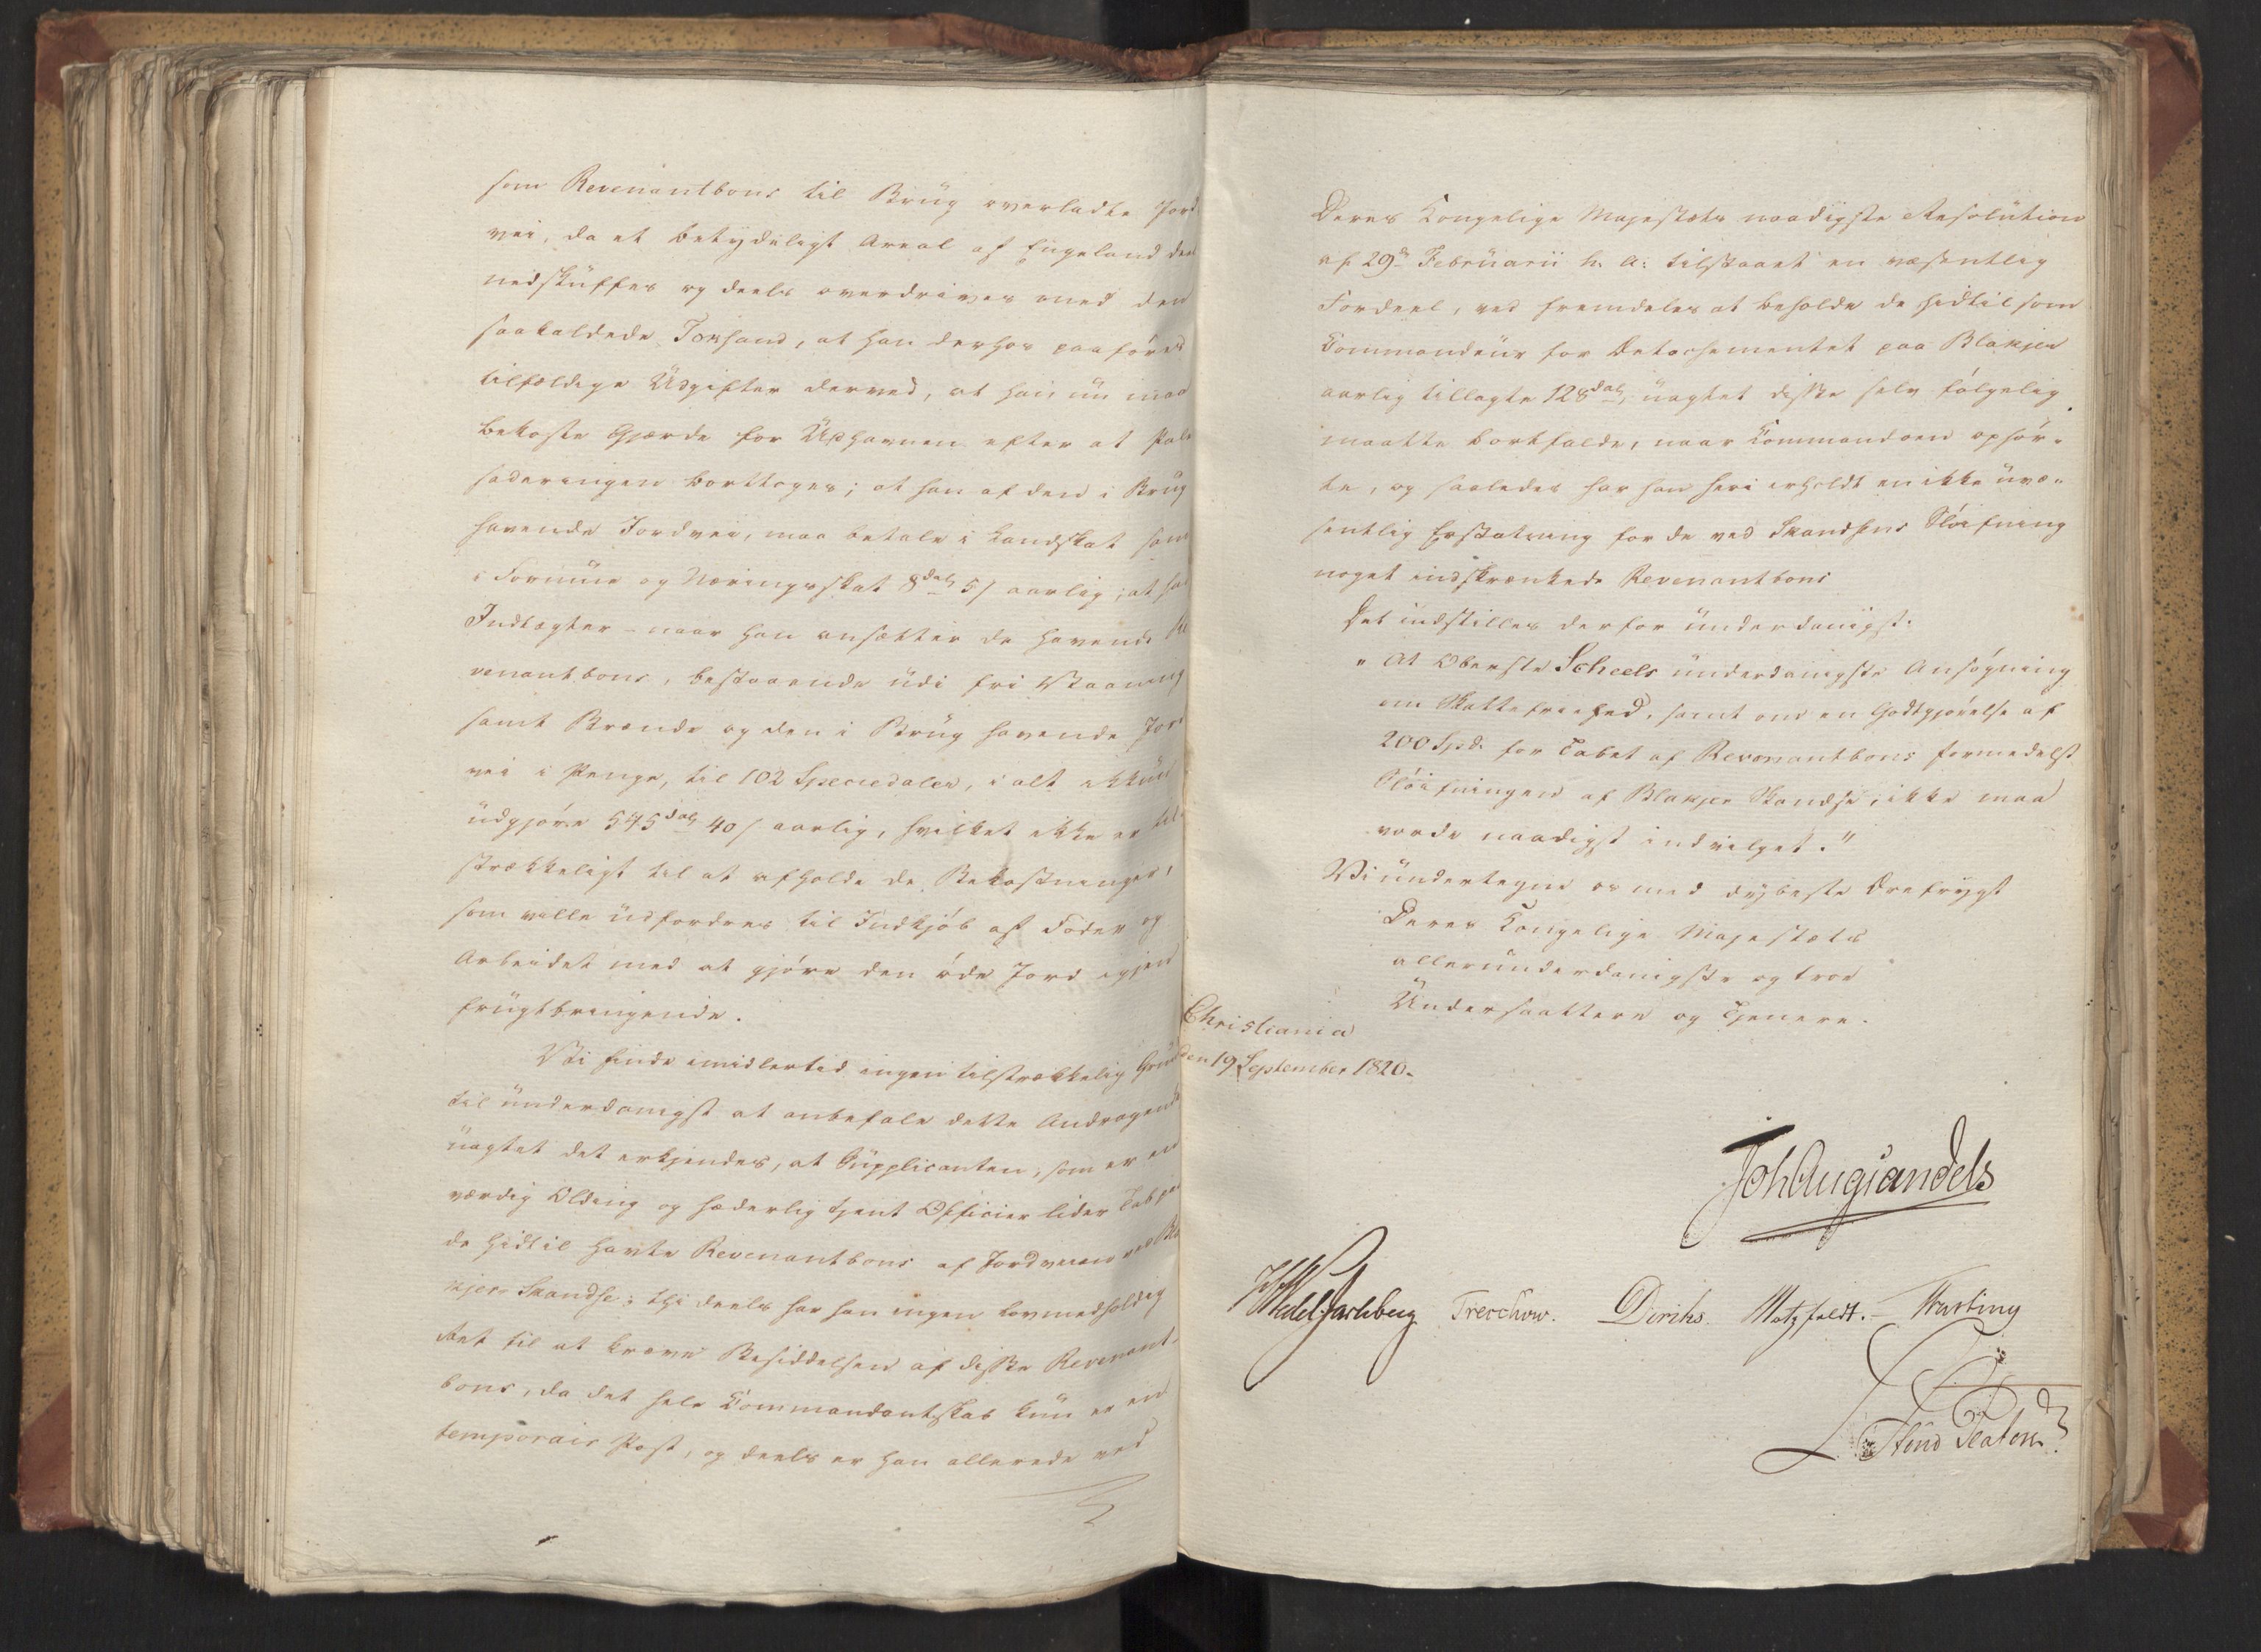 som Revenantbons til Brug overladte Jord
vei, da et betydeligt Areal af Engeland deels
nedskuffes og deels overdrives med den
saakaldede Torsand, at han derhos paaføres
tilfældige Udgifter derved, at han nu maa
bekoste Gjærde for Udhavnen efter at Pali
saderingen borttoges; at han af den i Brug
havende Jordvei, maa betale i Landskat som
i Formue og Næringsskat 8 dal 5 / aarlig; at hans
Indtægter - naar han ansætter de havende Re
venantbons, bestaaende udi fri Vaaning
samt Brænde og den i Brug havende Jord
vei i Penge, til 102 Speciedaler, i alt ikkun
udgjøre 545 dal 40 / aarlig, hvilket ikke er til
strækkeligt til at afholde de Bekostninger,
som ville udfordres til Indkjøb af Foder og
Arbeidet med at gjøre den øde Jord igjen
frugtbringende.
Vi finde imidlertid ingen tilstrækkelig Grund
til underdanigst at anbefale dette Andragende
uagtet det erkjendes, at Supplicanten, som er en
værdig Olding og hæderlig tjent Officier lider Tab paa
de hidtil havte Revenantbons af Jordveien ved Bla
kjer Skandse; thi deels har han ingen lovmedholdig
Ret til at kræve Besiddelsen af disse Revenant-
bons, da det hele Commandantskab kun er en
temporair Post, og deels er han allerede ved
Deres Kongelige Majestæts naadigste Resolution
af 29de Februarii h. a: tilstaaet en væsentlig
Fordeel, ved fremdeles at beholde de hidtil som
Commandeur for Detachementet paa Blakjer
aarlig tillagte 128 dal, uagtet disse selv følgelig
maatte bortfalde, naar Commandoen ophør-
te, og saaledes har han heri erholdt en ikke uvæ-
sentlig Erstatning for de ved Skandsens Sløifning
noget indskrænkede Revenantbons
Det indstilles derfor underdanigst:
"At Oberste Scheels underdanigste Ansøgning
om Skattefriehed, samt om en Godtgjørelse af
200 Spd. for Tabet af Revenantbons formedelst
Sløifningen af Blakjer Skandse, ikke maa
vorde naadigst indvilget."
Vi undertegne os med dybeste Ærefrygt
Deres Kongelige Majestæts
allerunderdanigste og troe
Undersaattere og Tjenere.
Christiania
den 19 September 1820.
Joh Aug Sandels
Wedel Jarlsberg Treschow. Diriks. Motzfeldt. Fasting